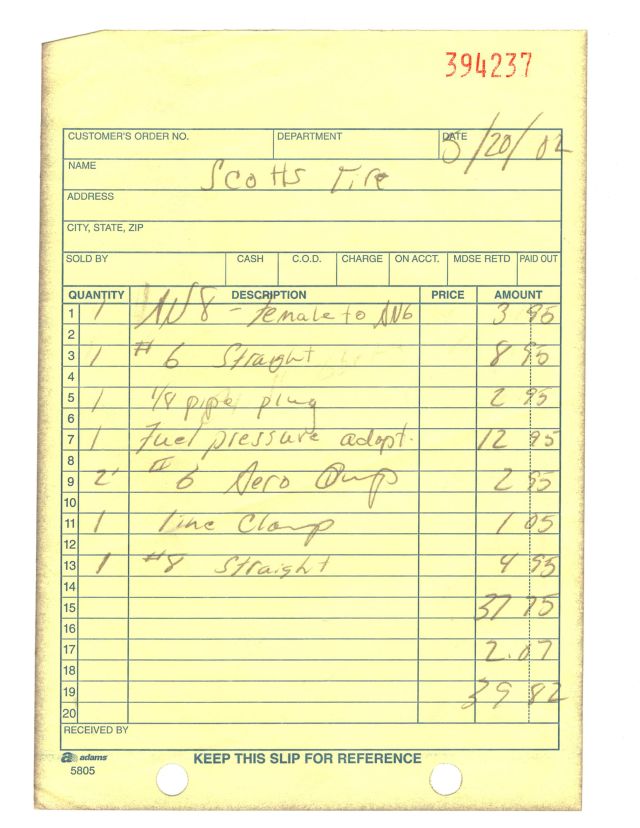 394237
CUSTOMER'S ORDER NO. DEPARTMENT DATE 3/20/02
NAME Scotts Tire
ADDRESS
CITY, STATE, ZIP
SOLD BY CASH C.O.D. CHARGE ON ACCT. MDSE RETD PAID OUT
QUANTITY DESCRIPTION PRICE AMOUNT
1 1 AN8 - Female to AN6 3 95
2
3 1 #6 Straight 8 95
4
5 1 1/8 pipe plug 2 95
6
7 1 Fuel pressure adapt. 12 95
8
9 2' #6 Aero 2 95
10
11 1 Line Clamp 1 05
12
13 1 #8 Straight 4 95
14
15 37 75
16
17 2.07
18
19 39 82
20
RECEIVED BY
adams
5805
KEEP THIS SLIP FOR REFERENCE